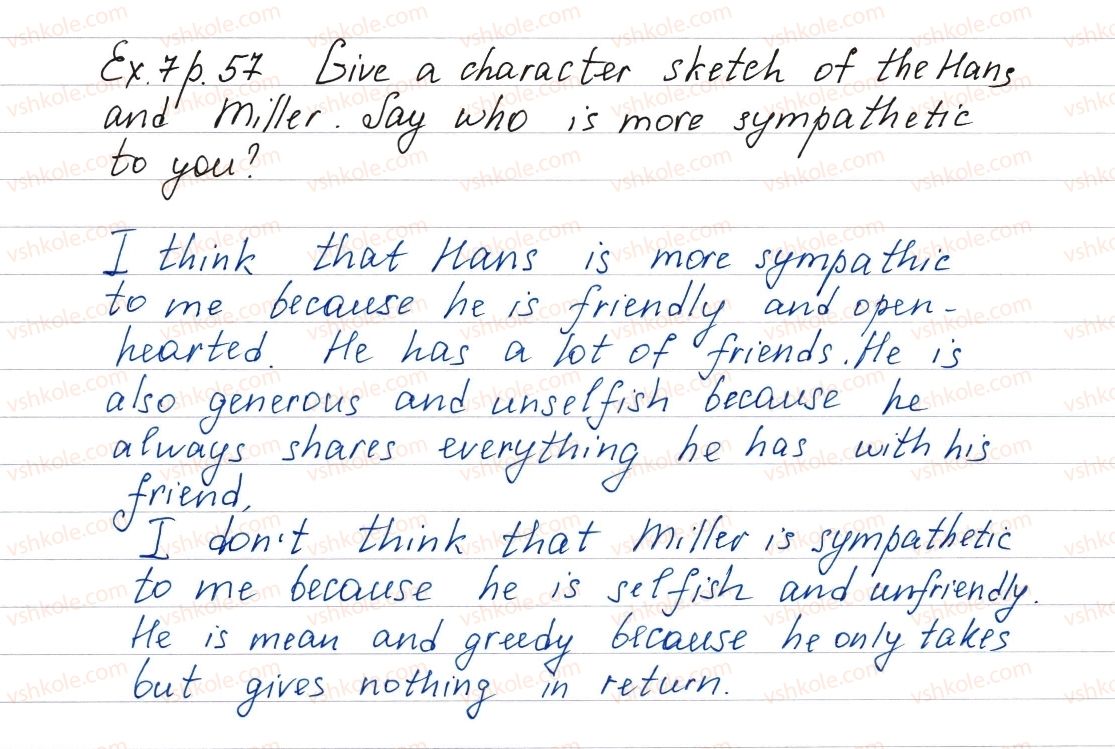 Ex. 7 p. 57 Give a character sketch of the Hans
and Miller. Say who is more sympathetic
to you?
I think that Hans is more sympathic
to me because he is friendly and open-
hearted. He has a lot of friends. He is
also generous and unselfish because he
always shares everything he has with his
friend.
I don't think that Miller is sympathetic
to me because he is selfish and unfriendly.
He is mean and greedy because he only takes
but gives nothing in return.
vshkole.com